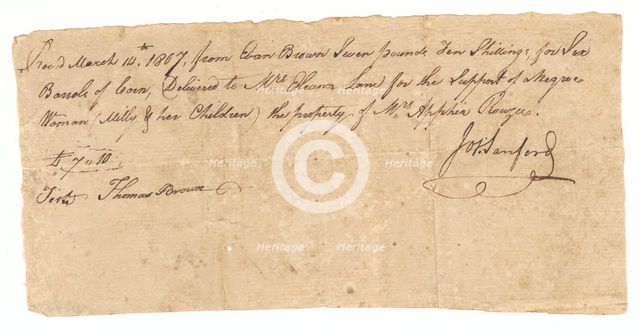 Rec'd March 14th 1807, from Evan Brown Seven pounds Ten Shillings, for Six
Barrels of Corn, (Delivered to Mrs Eleanor Lane for the Support of a Negroe
Woman (Milly & her Children) the property of Mrs Apphia Rouzee.
£ 7 " 10
Jos. Sanford
Test Thomas Brown
Heritage
Heritage
Heritage
Heritage
Heritage
Heritage